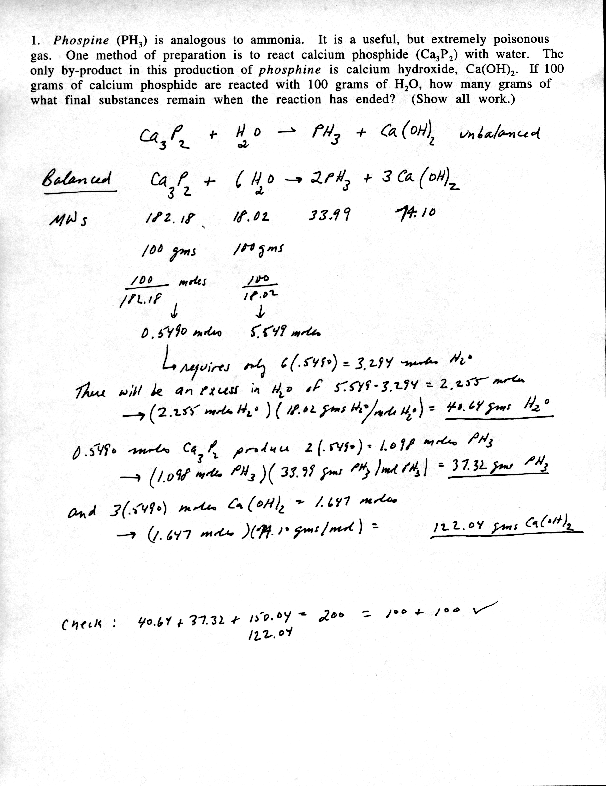 1. Phospine (PH₃) is analogous to ammonia. It is a useful, but extremely poisonous
gas. One method of preparation is to react calcium phosphide (Ca₃P₂) with water. The
only by-product in this production of phosphine is calcium hydroxide, Ca(OH)₂. If 100
grams of calcium phosphide are reacted with 100 grams of H₂O, how many grams of
what final substances remain when the reaction has ended? (Show all work.)
Ca₃P₂ + H₂O → PH₃ + Ca(OH)₂ unbalanced
Balanced Ca₃P₂ + 6 H₂O → 2PH₃ + 3 Ca(OH)₂
MWs 182.18 18.02 33.99 74.10
100 gms 100 gms
100/182.18 moles 100/18.02
↓ ↓
0.5490 moles 5.549 moles
↳ requires only 6(.5490) = 3.294 moles H₂O
There will be an excess in H₂O of 5.549-3.294 = 2.255 moles
→ (2.255 moles H₂O)(18.02 gms H₂O/mole H₂O) = 40.64 gms H₂O
0.5490 moles Ca₃P₂ produce 2(.5490) = 1.098 moles PH₃
→ (1.098 moles PH₃)(33.99 gms PH₃/mol PH₃) = 37.32 gms PH₃
and 3(.5490) moles Ca(OH)₂ = 1.647 moles
→ (1.647 moles)(74.10 gms/mol) = 122.04 gms Ca(OH)₂
Check: 40.64 + 37.32 + 150.04 = 200 = 100 + 100 ✓
122.04